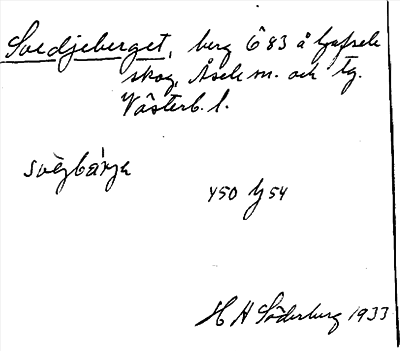 Svedjeberget, berg Ö 83 å Gafsele
skog, Åsele m. och tg.
Västerb. l.
svèjbärje
Y50 Ij 54
H H Söderberg 1933